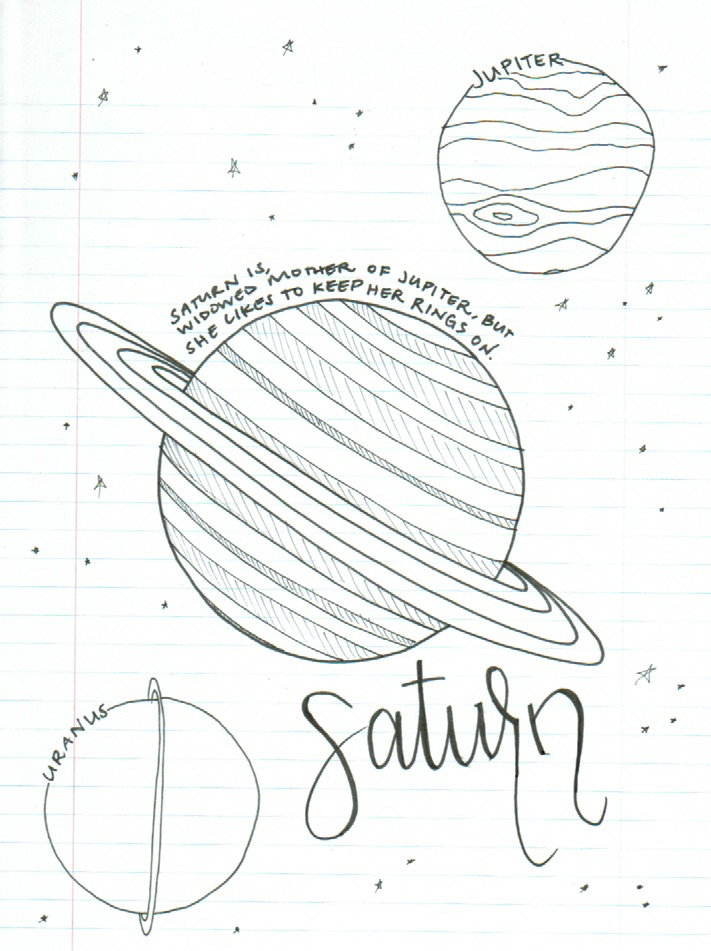 JUPITER
SATURN IS,
WIDOWED MOTHER OF JUPITER, BUT
SHE LIKES TO KEEP HER RINGS ON.
saturn
URANUS